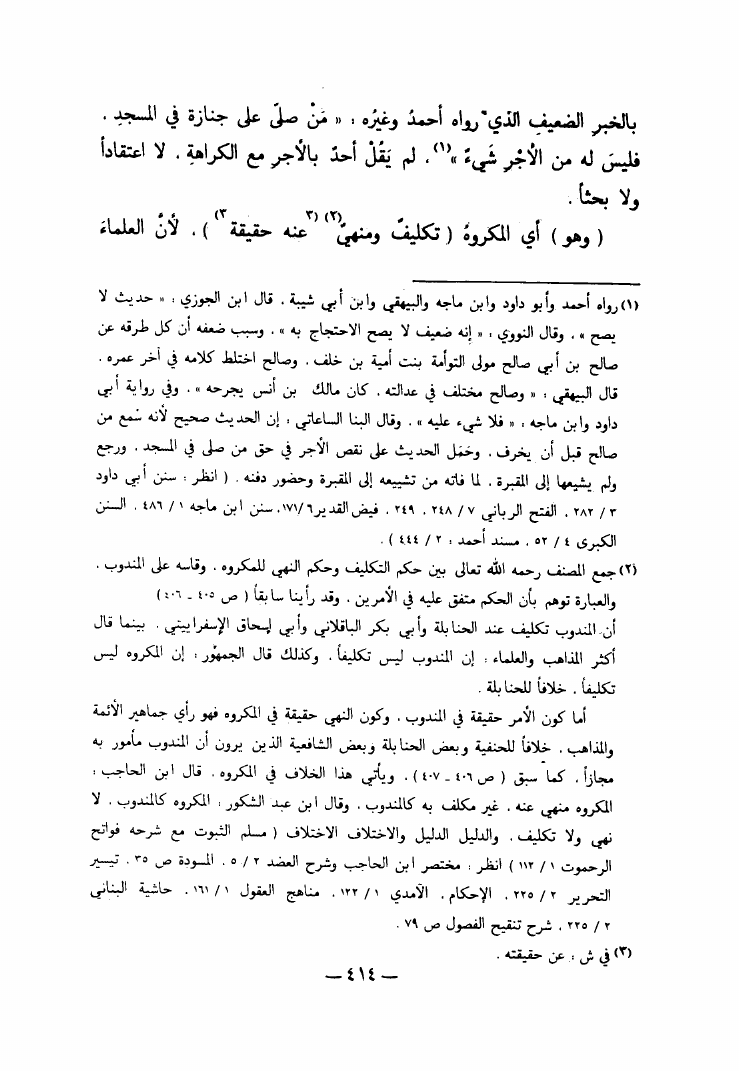 بالخبرِ الضعيفِ الذي رواه أحمدُ وغيرُه : « مَنْ صلّى على جنازة في المسجدِ .
فليسَ له من الأَجْرِ شَيءٌ »(١) ، لم يَقُلْ أحدٌ بالأجرِ مع الكراهةِ ، لا اعتقاداً
ولا بحثاً .
( وهو ) أي المكروهُ ( تكليفٌ ومنهيٌّ(٢) (٣عنه حقيقة٣) ) ، لأنَّ العلماءَ
(١) رواه أحمد وأبو داود وابن ماجه والبيهقي وابن أبي شيبة . قال ابن الجوزي : « حديث لا
يصح » ، وقال النووي : « إنه ضعيف لا يصح الاحتجاج به » . وسبب ضعفه أن كل طرقه عن
صالح بن أبي صالح مولى التوأمة بنت أمية بن خلف . وصالح اختلط كلامه في آخر عمره .
قال البيهقي : « وصالح مختلف في عدالته . كان مالك بن أنس يجرحه » . وفي رواية أبي
داود وابن ماجه : « فلا شيء عليه » . وقال البنا الساعاتي : إن الحديث صحيح لأنه سُمع من
صالح قبل أن يخرف . وحَمَل الحديث على نقص الأجر في حق من صلى في المسجد . ورجع
ولم يشيعها إلى المقبرة . لما فاته من تشييعه إلى المقبرة وحضور دفنه . ( انظر : سنن أبي داود
٣ / ٢٨٢ ، الفتح الرباني ٧ / ٢٤٨ ، ٢٤٩ ، فيض القدير ٦/ ١٧١، سنن ابن ماجه ١ / ٤٨٦ ، السنن
الكبرى ٤ / ٥٢ ، مسند أحمد : ٢ / ٤٤٤ ) .
(٢) جمع المصنف رحمه الله تعالى بين حكم التكليف وحكم النهي للمكروه . وقاسه على المندوب .
والعبارة توهم بأن الحكم متفق عليه في الأمرين . وقد رأينا سابقاً ( ص ٤٠٥ ـ ٤٠٦ )
أن المندوب تكليف عند الحنابلة وأبي بكر الباقلاني وأبي إسحاق الإسفراييني . بينما قال
أكثر المذاهب والعلماء : إن المندوب ليس تكليفاً . وكذلك قال الجمهور : إن المكروه ليس
تكليفاً . خلافاً للحنابلة .
أما كون الأمر حقيقة في المندوب . وكون النهي حقيقة في المكروه فهو رأي جماهير الأئمة
والمذاهب . خلافاً للحنفية وبعض الحنابلة وبعض الشافعية الذين يرون أن المندوب مأمور به
مجازاً . كما سبق ( ص ٤٠٦ ـ ٤٠٧ ) . ويأتي هذا الخلاف في المكروه . قال ابن الحاجب :
المكروه منهي عنه . غير مكلف به كالمندوب . وقال ابن عبد الشكور : المكروه كالمندوب . لا
نهي ولا تكليف . والدليل الدليل والاختلاف الاختلاف ( مسلم الثبوت مع شرحه فواتح
الرحموت ١ / ١١٢ ) انظر : مختصر ابن الحاجب وشرح العضد ٢ / ٥ ، المسودة ص ٣٥ ، تيسير
التحرير ٢ / ٢٢٥ ، الإحكام ، الآمدي ١ / ١٢٢ ، مناهج العقول ١ / ١٦١ ، حاشية البناني
٢ / ٢٢٥ ، شرح تنقيح الفصول ص ٧٩ .
(٣) في ش : عن حقيقته .
— ٤١٤ —